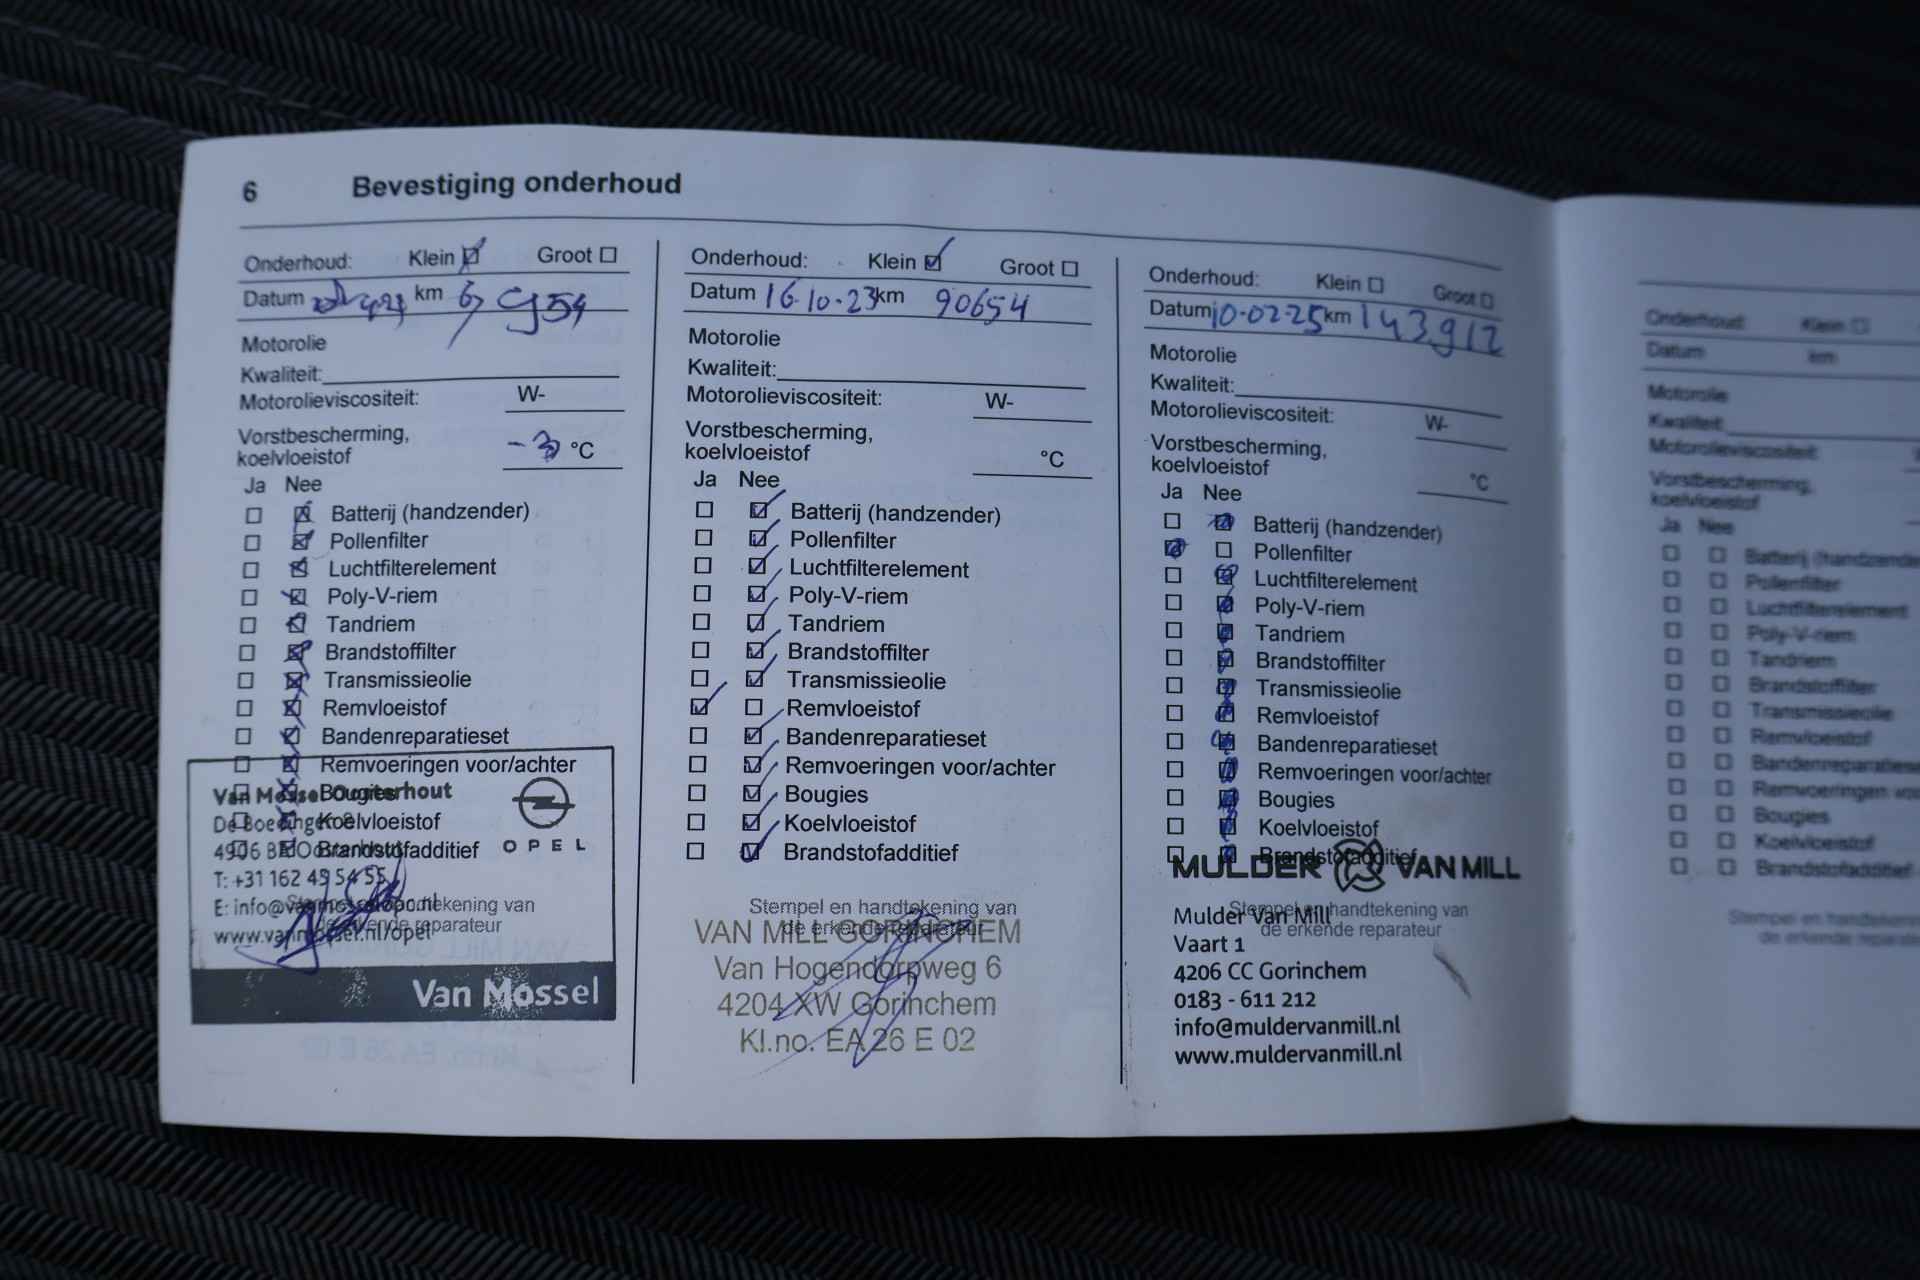 6 Bevestiging onderhoud
Onderhoud: Klein Groot
Datum km
Motorolie
Kwaliteit:
Motorolieviscositeit: W-
Vorstbescherming,
koelvloeistof °C
Ja Nee
Batterij (handzender)
Pollenfilter
Luchtfilterelement
Poly-V-riem
Tandriem
Brandstoffilter
Transmissieolie
Remvloeistof
Bandenreparatieset
Remvoeringen voor/achter
Bougies
Koelvloeistof
Brandstofadditief
Van Mossel Oosterhout
4906 BA Oosterhout
T: +31 162 45 54 55
OPEL
Stempel en handtekening van
de erkende reparateur
www.vanmossel.nl/opel
Van Mossel
Onderhoud: Klein Groot
Datum 16-10-23 km 90654
Motorolie
Kwaliteit:
Motorolieviscositeit: W-
Vorstbescherming,
koelvloeistof °C
Ja Nee
Batterij (handzender)
Pollenfilter
Luchtfilterelement
Poly-V-riem
Tandriem
Brandstoffilter
Transmissieolie
Remvloeistof
Bandenreparatieset
Remvoeringen voor/achter
Bougies
Koelvloeistof
Brandstofadditief
Stempel en handtekening van
de erkende reparateur
VAN MILL GORINCHEM
Van Hogendorpweg 6
4204 XW Gorinchem
Kl.no. EA 26 E 02
Onderhoud: Klein Groot
Datum 10-02-25 km 143912
Motorolie
Kwaliteit:
Motorolieviscositeit: W-
Vorstbescherming,
koelvloeistof °C
Ja Nee
Batterij (handzender)
Pollenfilter
Luchtfilterelement
Poly-V-riem
Tandriem
Brandstoffilter
Transmissieolie
Remvloeistof
Bandenreparatieset
Remvoeringen voor/achter
Bougies
Koelvloeistof
Brandstofadditief
MULDER VAN MILL
Stempel en handtekening van
de erkende reparateur
Mulder Van Mill
Vaart 1
4206 CC Gorinchem
0183 - 611 212
info@muldervanmill.nl
www.muldervanmill.nl
Onderhoud: Klein
Datum km
Motorolie
Kwaliteit:
Motorolieviscositeit:
Vorstbescherming,
koelvloeistof
Ja Nee
Batterij
Pollenfilter
Luchtfilterelement
Poly-V-riem
Tandriem
Brandstoffilter
Transmissieolie
Remvloeistof
Remvoeringen
Bougies
Koelvloeistof
Brandstofadditief
Stempel en
de erkende